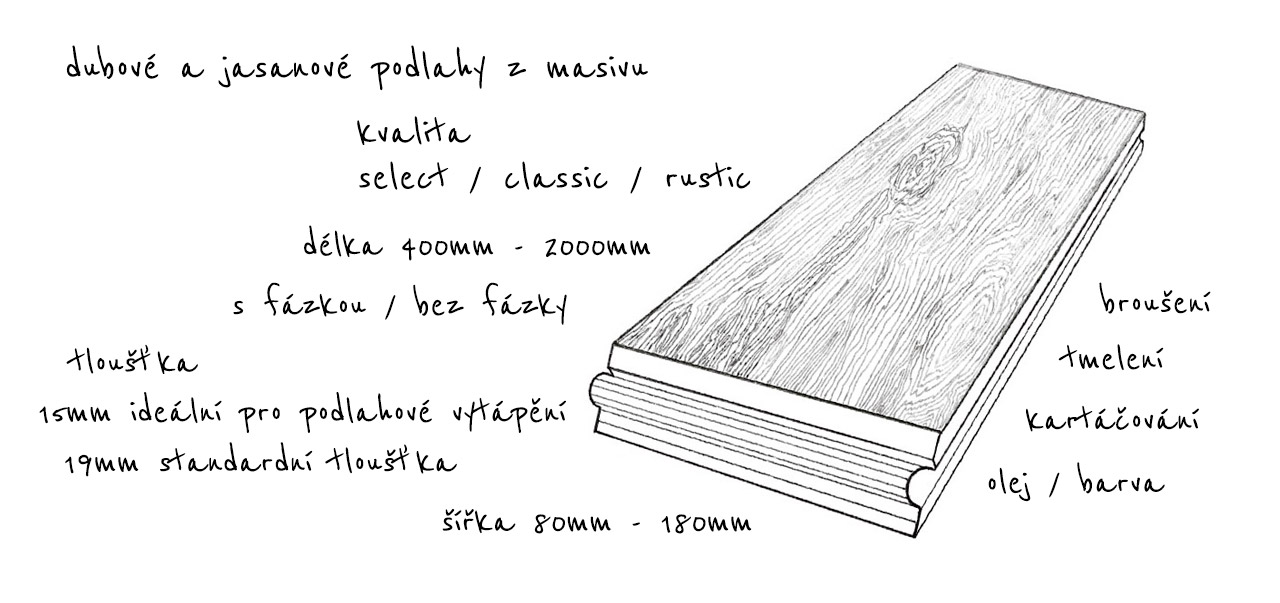 dubové a jasanové podlahy z masivu
kvalita
select / classic / rustic
délka 400mm - 2000mm
s fázkou / bez fázky
tloušťka
15mm ideální pro podlahové vytápění
19mm standardní tloušťka
šířka 80mm - 180mm
broušení
tmelení
kartáčování
olej / barva